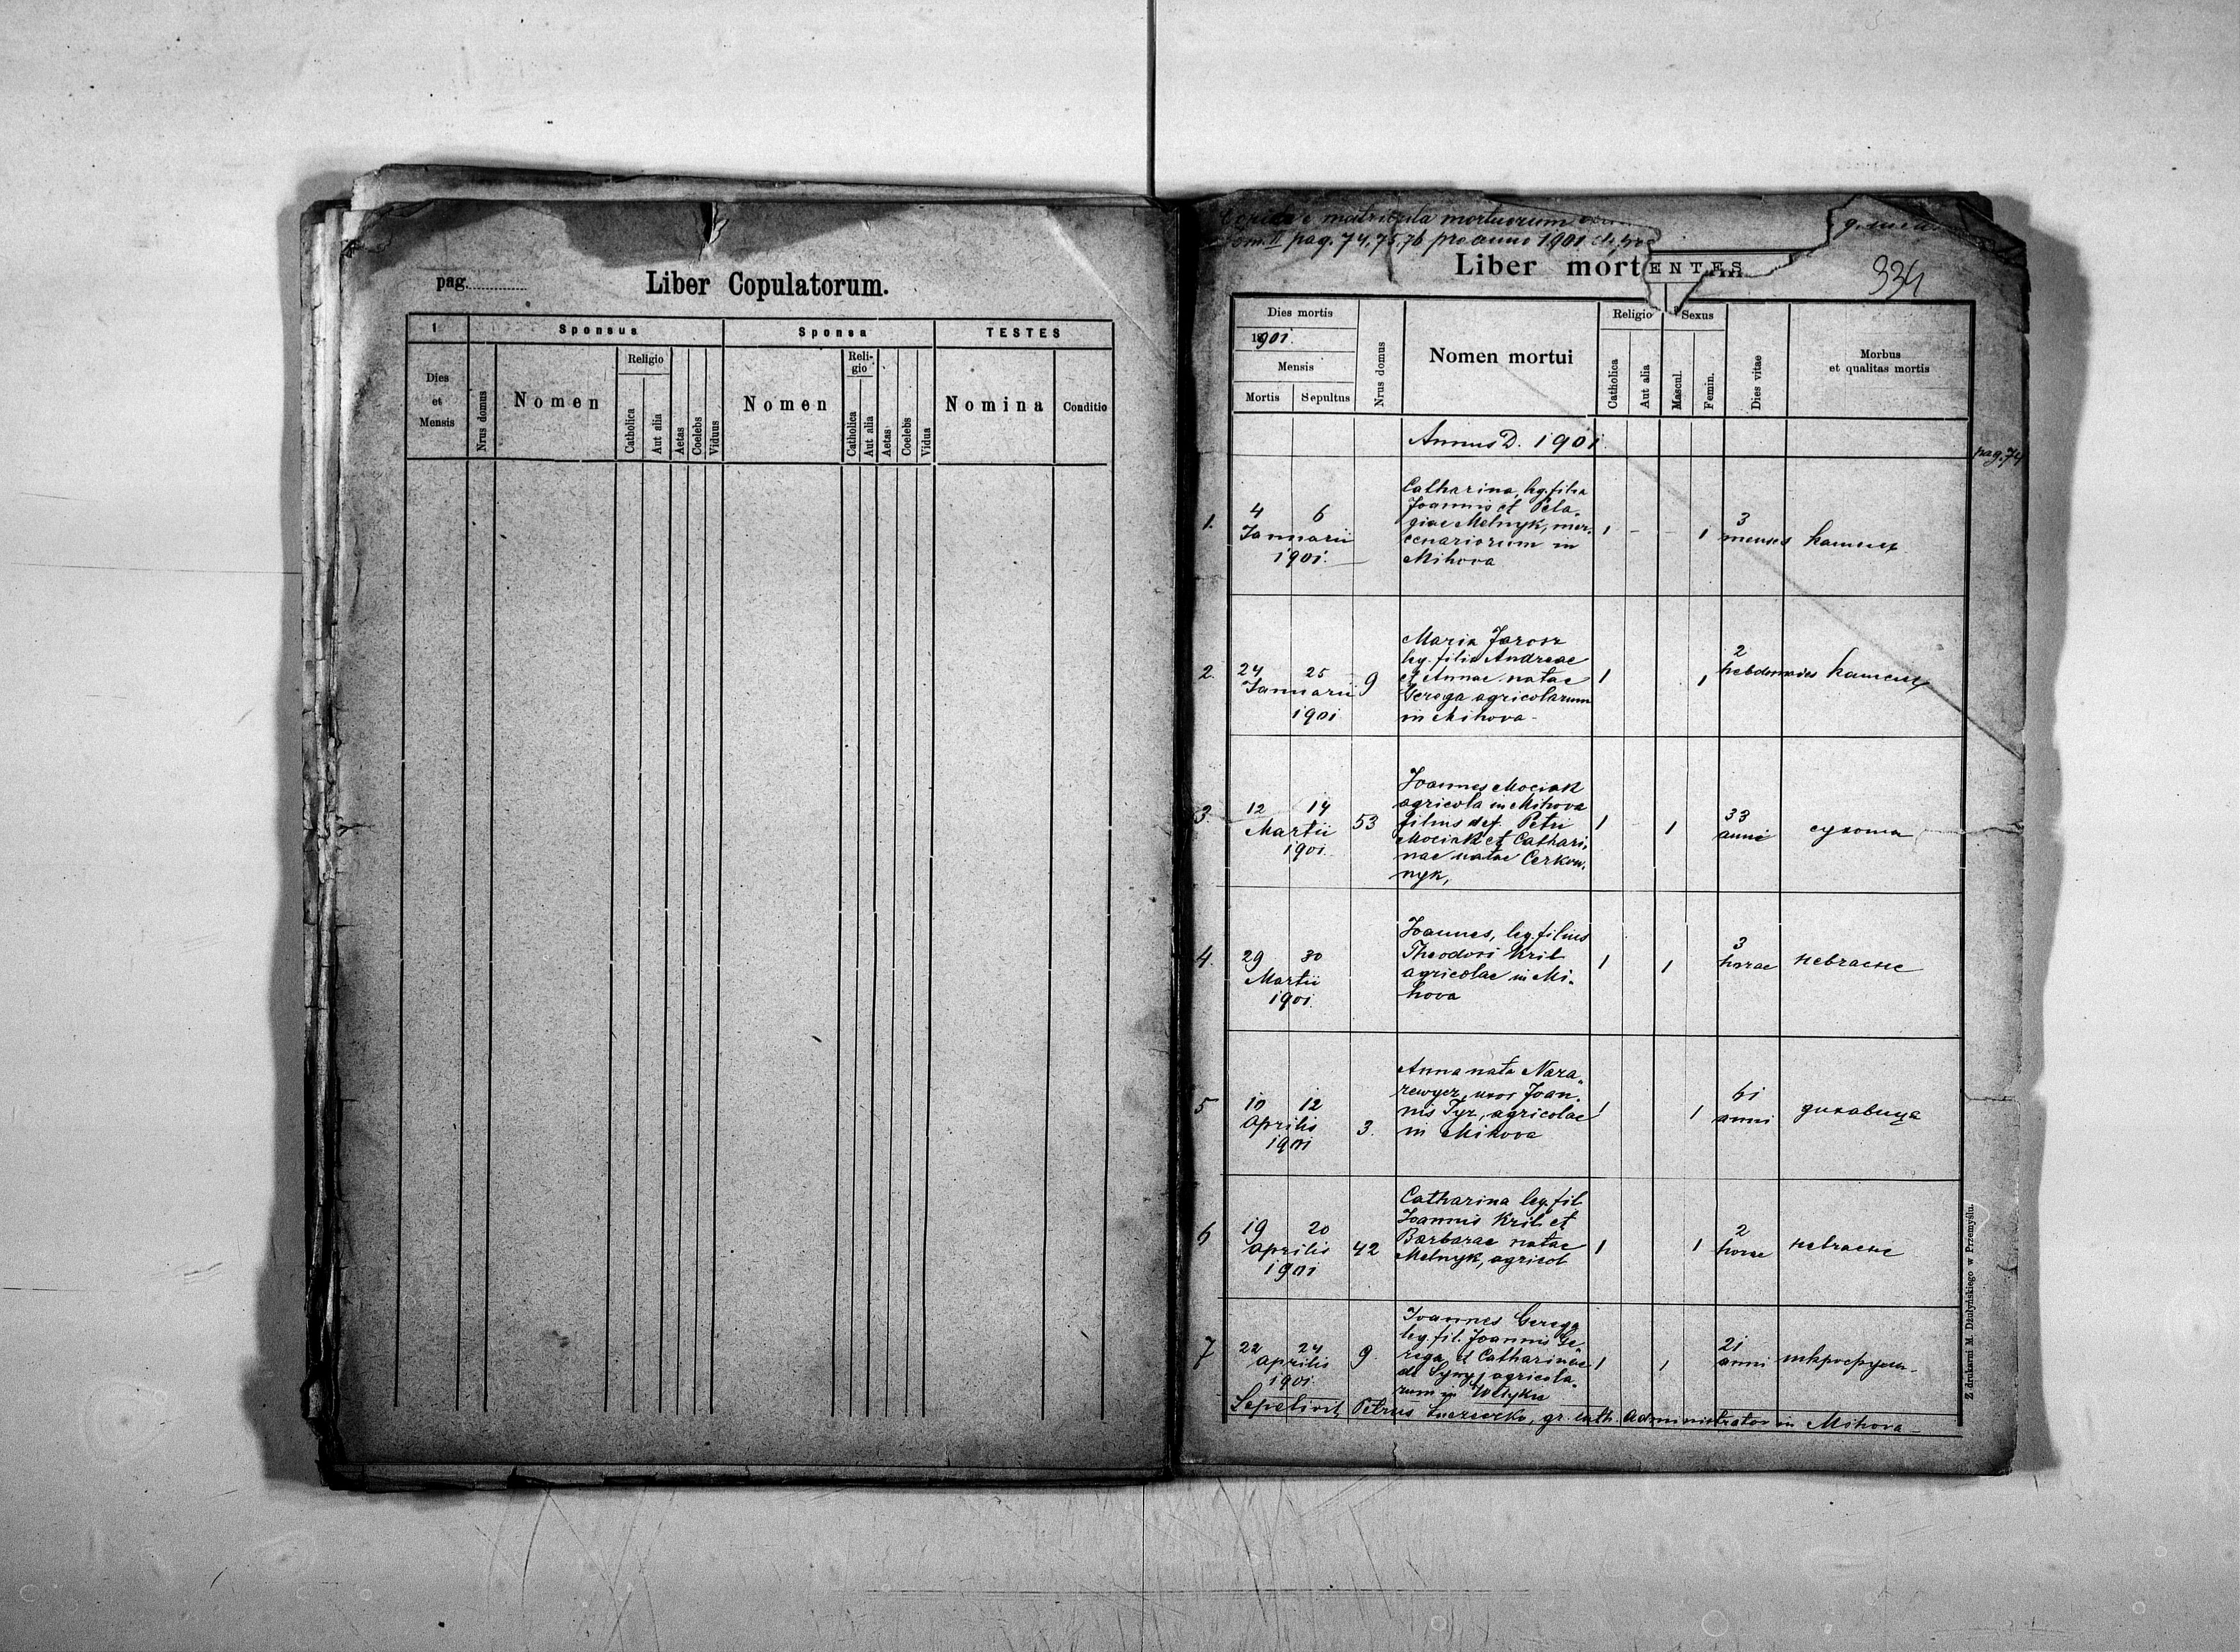 pag.
Liber Copulatorum.
1
Sponsus
Sponsa
TESTES
Dies et Mensis
Nrus domus
Nomen
Religio
Catholica
Aut alia
Aetas
Coelebs
Viduus
Nomen
Religio
Catholica
Aut alia
Aetas
Coelebs
Vidua
Nomina
Conditio
matricula mortuorum
Tom. II pag. 74, 75, 76 pro anno 1901
Liber mort
ENTES
334
Dies mortis
1901.
Mensis
Mortis
Sepultus
Nrus domus
Nomen mortui
Religio
Catholica
Aut alia
Sexus
Mascul.
Femin.
Dies vitae
Morbus
et qualitas mortis
Annus D. 1901.
pag. 74
1.
4 6
Januarii
1901.
Catharina, leg. filia
Joannis et Pela-
giae Melnyk, mer-
cenariorum in
Mihova
1 - - 1
3
menses
кашель
2.
24 25
Januarii
1901
9
Maria Jarosz
leg. filia Andreae
et Annae natae
Gerega agricolarum
in Mihova
1 1
2
hebdomades
кашель
3.
12 14
Martii
1901.
53
Joannes Mociak
agricola in Mihova
filius def. Petri
Mociak et Cathari-
nae natae Cerkow-
nyk,
1 - 1
33
anni
сухоти
4.
29 30
Martii
1901.
Joannes, leg. filius
Theodori Kril
agricolae in Mi-
hova
1 1
3
horae
невчасне
5
10 12
Aprilis
1901
3.
Anna nata Naza-
rewycz, uxor Joan-
nis Tyz, agricolae
in Mihova
1 1
61
anni
дихавиця
6
19 20
Aprilis
1901
42
Catharina leg. fil
Joannis Kril et
Barbarae natae
Melnyk, agricol
1 1
2
horae
невчасне
7
22 24
Aprilis
1901.
9.
Joannes Gerega
leg. fil. Joannis Ge-
rega et Catharinae
de Synyj agricola-
rum in Wilyka
1 1
21
anni
Sepelivit Petrus gr. cath. Administrator in Mihova
Z drukarni M. Dżułyńskiego w Przemyślu.